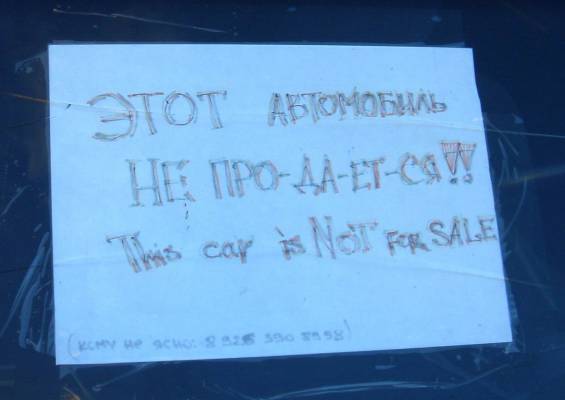 ЭТОТ АВТОМОБИЛЬ
НЕ ПРО-ДА-ЕТ-СЯ!!
This car is NOT FOR SALE
(кому не ясно: 8 926 390 8998)